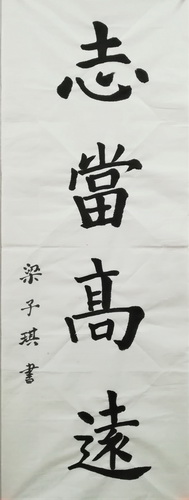 志當髙遠
梁子琪書